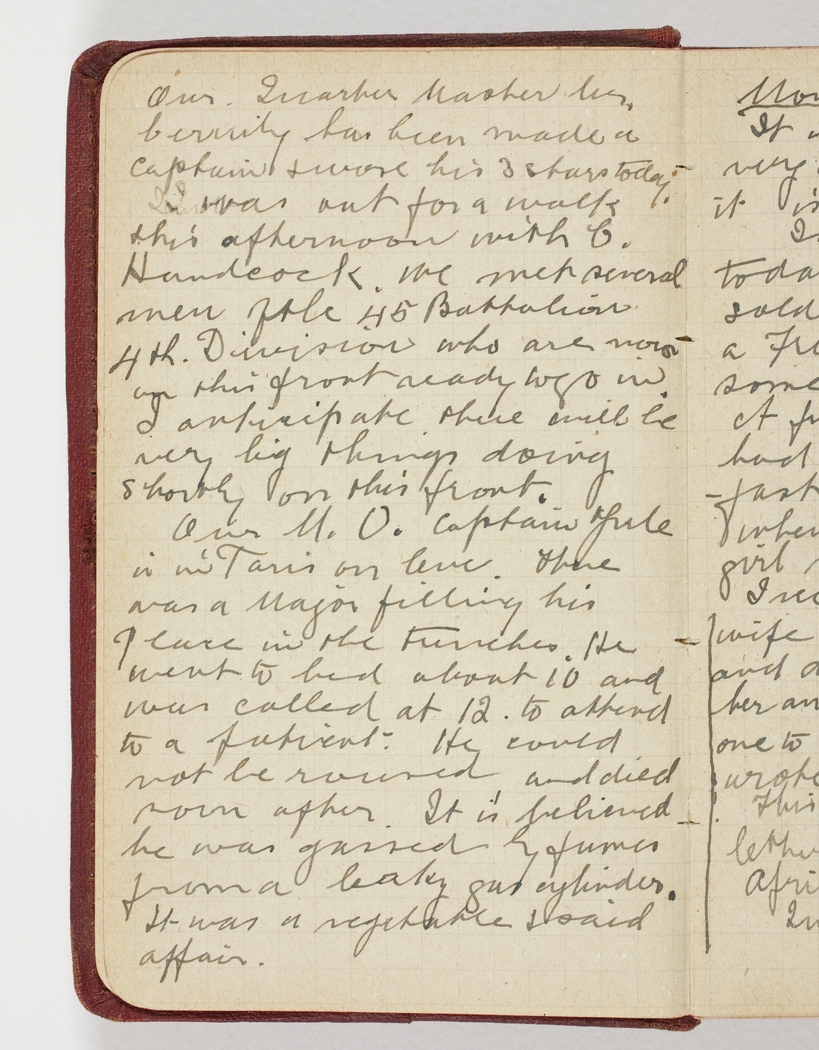 Our Quarter Master Lieu.
has been made a
captain & wore his 3 stars today.
I was out for a walk
this afternoon with C.
Handcock. We met several
men of the 45 Battalion
4th. Division who are now
on this front ready to go in.
I anticipate there will be
very big things doing
shortly on this front.
Our M. O. Captain Yule
is in Paris on leve. There
was a Major filling his
place in the trenches. He
went to bed about 10 and
was called at 12. to attend
to a patient. He could
not be roused and died
soon after. It is believed
he was gassed by fumes
from a leaky gas cylinder.
It was a regretable & said
affair.
It
very
it is
I
toda
sold
a Fr
some
A fu
had
fast
when
girl
I rec
wife
and a
her an
one to
wrote
This
lette
Afri